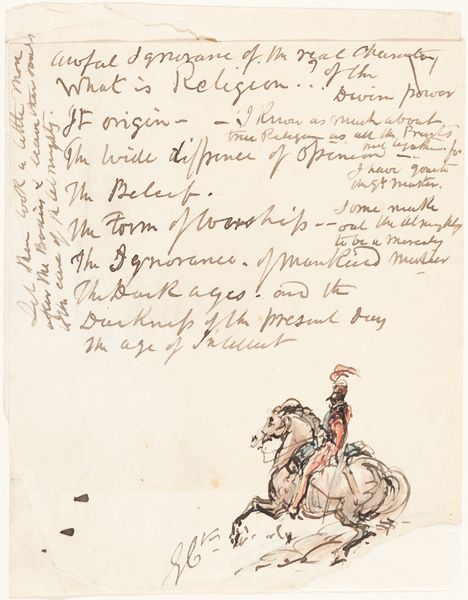 awful Ignorance of the real Character
of the
Divine power
What is Religion..?
It origin -
- I know as much about
true Religion as all the Priests
put together - for
I have gone to
the Gt Master.
The Wide diffrence of Opinion -
The Beleif.
Some make
out the Almighty
to be a Merciless
Master
The Form of Worship -
The Ignorance. of Mankind
The Dark ages. and the
Darkness of the present day
the age of Intellect
Let them look a little more
after the and leave their souls
to the care of the Almighty.
GCk